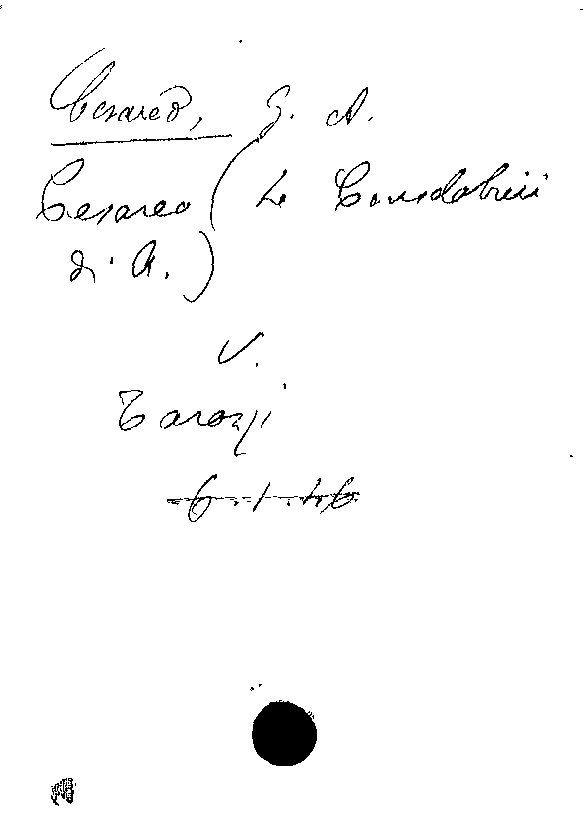 Cesareo, G. A.
Cesareo (Le Consolatrici
di A.)
V.
Tarozzi
6.1.46